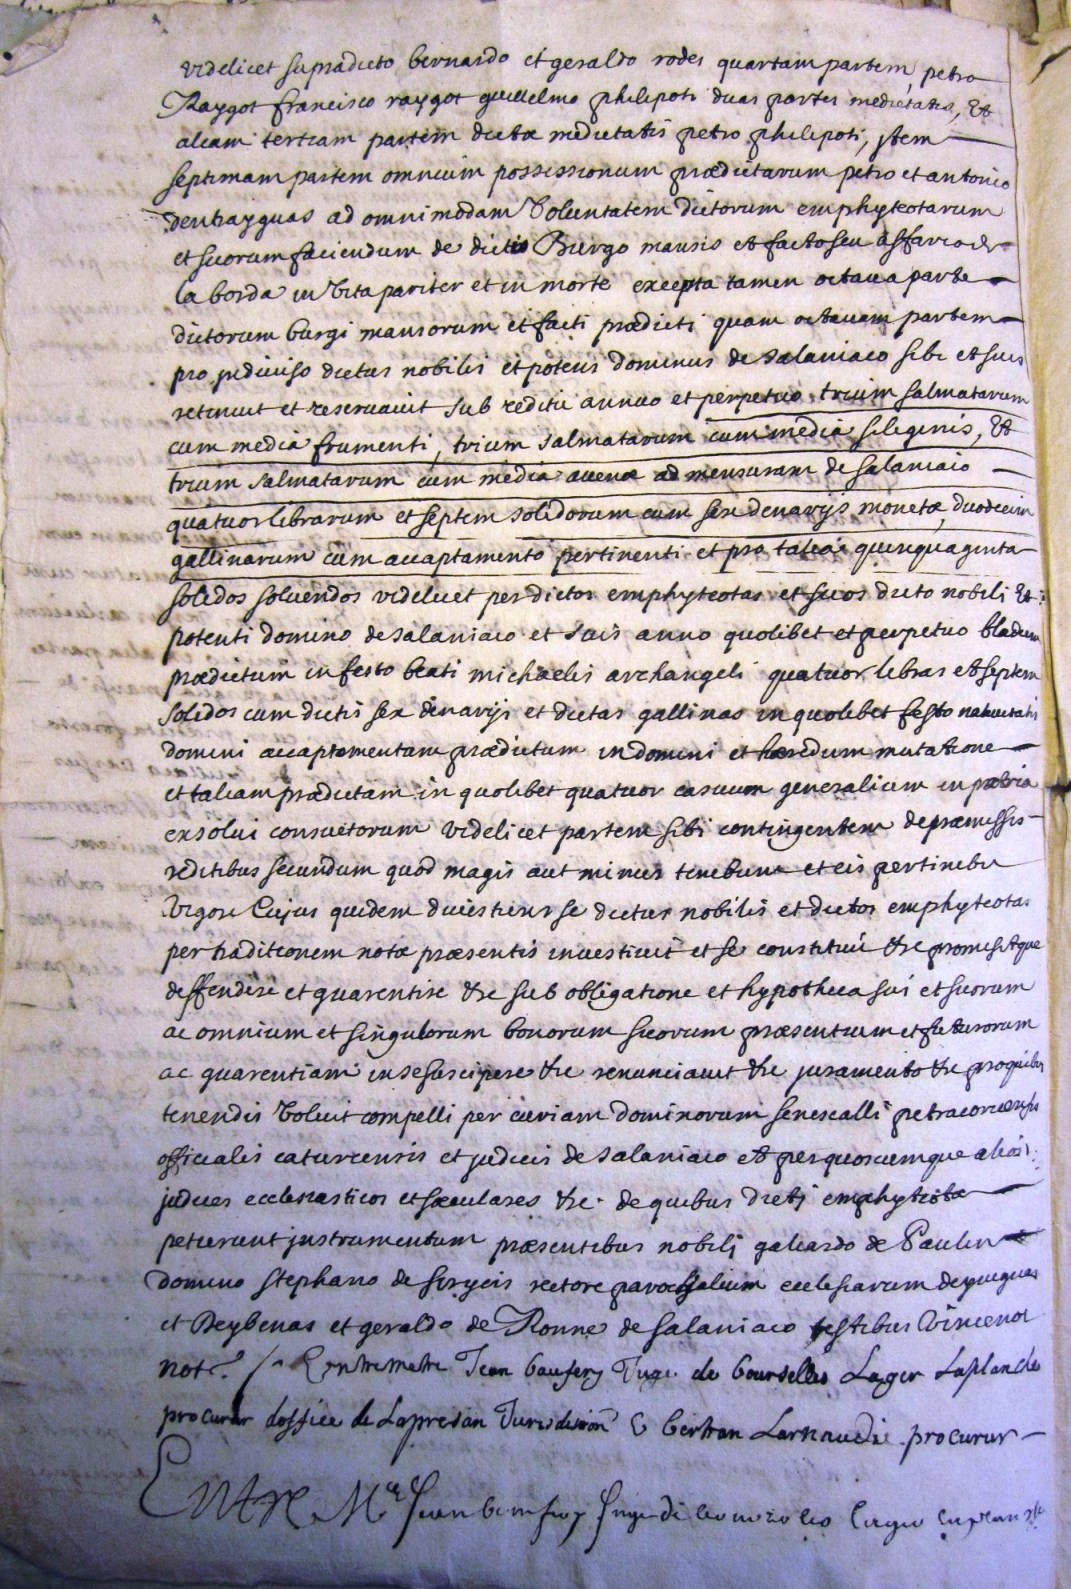 videlicet supradicto bernardo et geraldo rodes quartam partem, petro
Raygot francisco raygot guillelmo philipoti duas partes medietatis, et
aliam tertiam partem dictæ medietatis petro philipoti, jtem
septimam partem omnium possessionum prædictarum petro et antonio
dentrayguas ad omnimodam voluntatem dictorum emphyteotarum
et suorum faciendum de dictis Burgo mansis et facto seu affario de
la borda in vita pariter et in morte excepta tamen octava parte
dictorum burgi mansorum et facti prædicti quam octavam partem
pro jndiviso dictus nobilis et potens dominus de Salaniaco sibi et suis
retinuit et reservavit sub redditu annuo et perpetuo trium salmatarum
cum media frumenti, trium salmatarum cum media siliginis, et
trium salmatarum cum media avenæ ad mensuram de salaniaco
quatuor librarum et septem solidorum cum sex denarijs monetæ, duodecim
gallinarum cum accaptamento pertinenti et pro talea quinquaginta
solidos solvendos videlicet per dictos emphyteotas et suos dicto nobili et
potenti domino de salaniaco et suis anno quolibet et perpetuo bladum
prædictum in festo beati michaelis archangeli quatuor libras et septem
solidos cum dictis sex denarijs et dictas gallinas in quolibet festo nativitatis
domini accaptamentum prædictum in domini et hæredum mutatione
et taleam prædictam in quolibet quatuor casuum generalium in patria
exsolui consuetorum videlicet partem sibi contingentem de præmissis
reditibus secundum quod magis aut minus tenebunt et eis pertinebit
vigore Cujus quidem divestiens se dictus nobilis et dictos emphyteotas
per traditionem notæ præsentis investivit et se constituit &c promisitque
deffendere et guarentire &c sub obligatione et hypotheca sui et suorum
ac omnium et singulorum bonorum suorum præsentium et futurorum
ac guarentiam in se suscipere &c renunciavit &c juramento &c pro quibus
tenendis voluit compelli per curiam dominorum senescalli petracoricensis
officialis caturcensis et judicis de salaniaco et per quoscumque alios
judices ecclesiasticos et sæculares &c de quibus dicti emphyteotæ
petierunt jnstrumentum præsentibus nobili galeardo de Paulin
domino stephano de rectore parochialium ecclesiarum
et Reybenas et geraldo de Ronne de salaniaco testibus Vincenot
not.
Entre metre Jean baufery Juge de bourselles Lager Laplanche
procurur doffice de Lapresan Juridiction & bertran Larnaudie procurur
Entre Me Jean